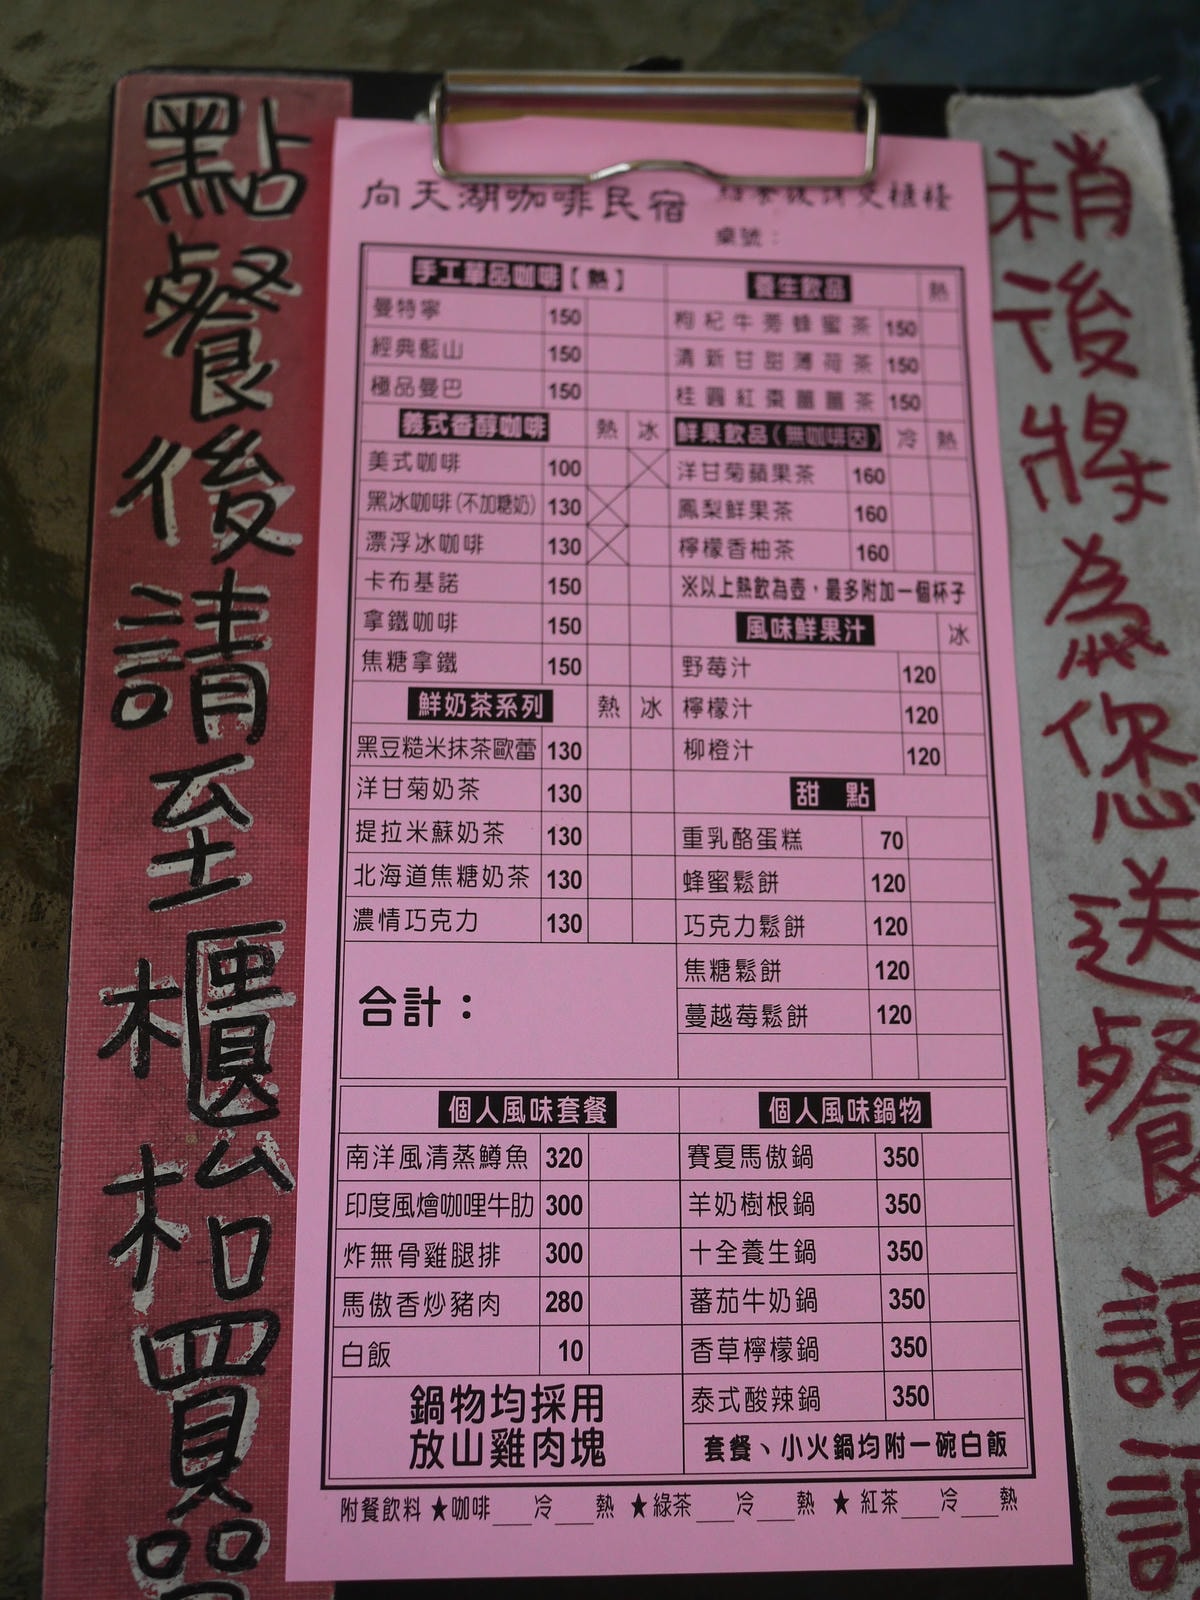 點餐後請至櫃台和買
稍後將為您送餐謝謝
向天湖咖啡民宿
點餐後請交櫃檯
桌號：
手工單品咖啡【熱】
曼特寧 150
經典藍山 150
極品曼巴 150
義式香醇咖啡 熱 冰
美式咖啡 100
黑冰咖啡(不加糖奶) 130
漂浮冰咖啡 130
卡布基諾 150
拿鐵咖啡 150
焦糖拿鐵 150
鮮奶茶系列 熱 冰
黑豆糙米抹茶歐蕾 130
洋甘菊奶茶 130
提拉米蘇奶茶 130
北海道焦糖奶茶 130
濃情巧克力 130
合計：
養生飲品 熱
枸杞牛蒡蜂蜜茶 150
清新甘甜薄荷茶 150
桂圓紅棗薑薑茶 150
鮮果飲品(無咖啡因) 冷 熱
洋甘菊蘋果茶 160
鳳梨鮮果茶 160
檸檬香柚茶 160
※以上熱飲為壺，最多附加一個杯子
風味鮮果汁 冰
野莓汁 120
檸檬汁 120
柳橙汁 120
甜 點
重乳酪蛋糕 70
蜂蜜鬆餅 120
巧克力鬆餅 120
焦糖鬆餅 120
蔓越莓鬆餅 120
個人風味套餐
南洋風清蒸鱒魚 320
印度風燴咖哩牛肋 300
炸無骨雞腿排 300
馬傲香炒豬肉 280
白飯 10
鍋物均採用
放山雞肉塊
個人風味鍋物
賽夏馬傲鍋 350
羊奶樹根鍋 350
十全養生鍋 350
蕃茄牛奶鍋 350
香草檸檬鍋 350
泰式酸辣鍋 350
套餐、小火鍋均附一碗白飯
附餐飲料 ★咖啡___冷___熱 ★綠茶___冷___熱 ★紅茶___冷___熱